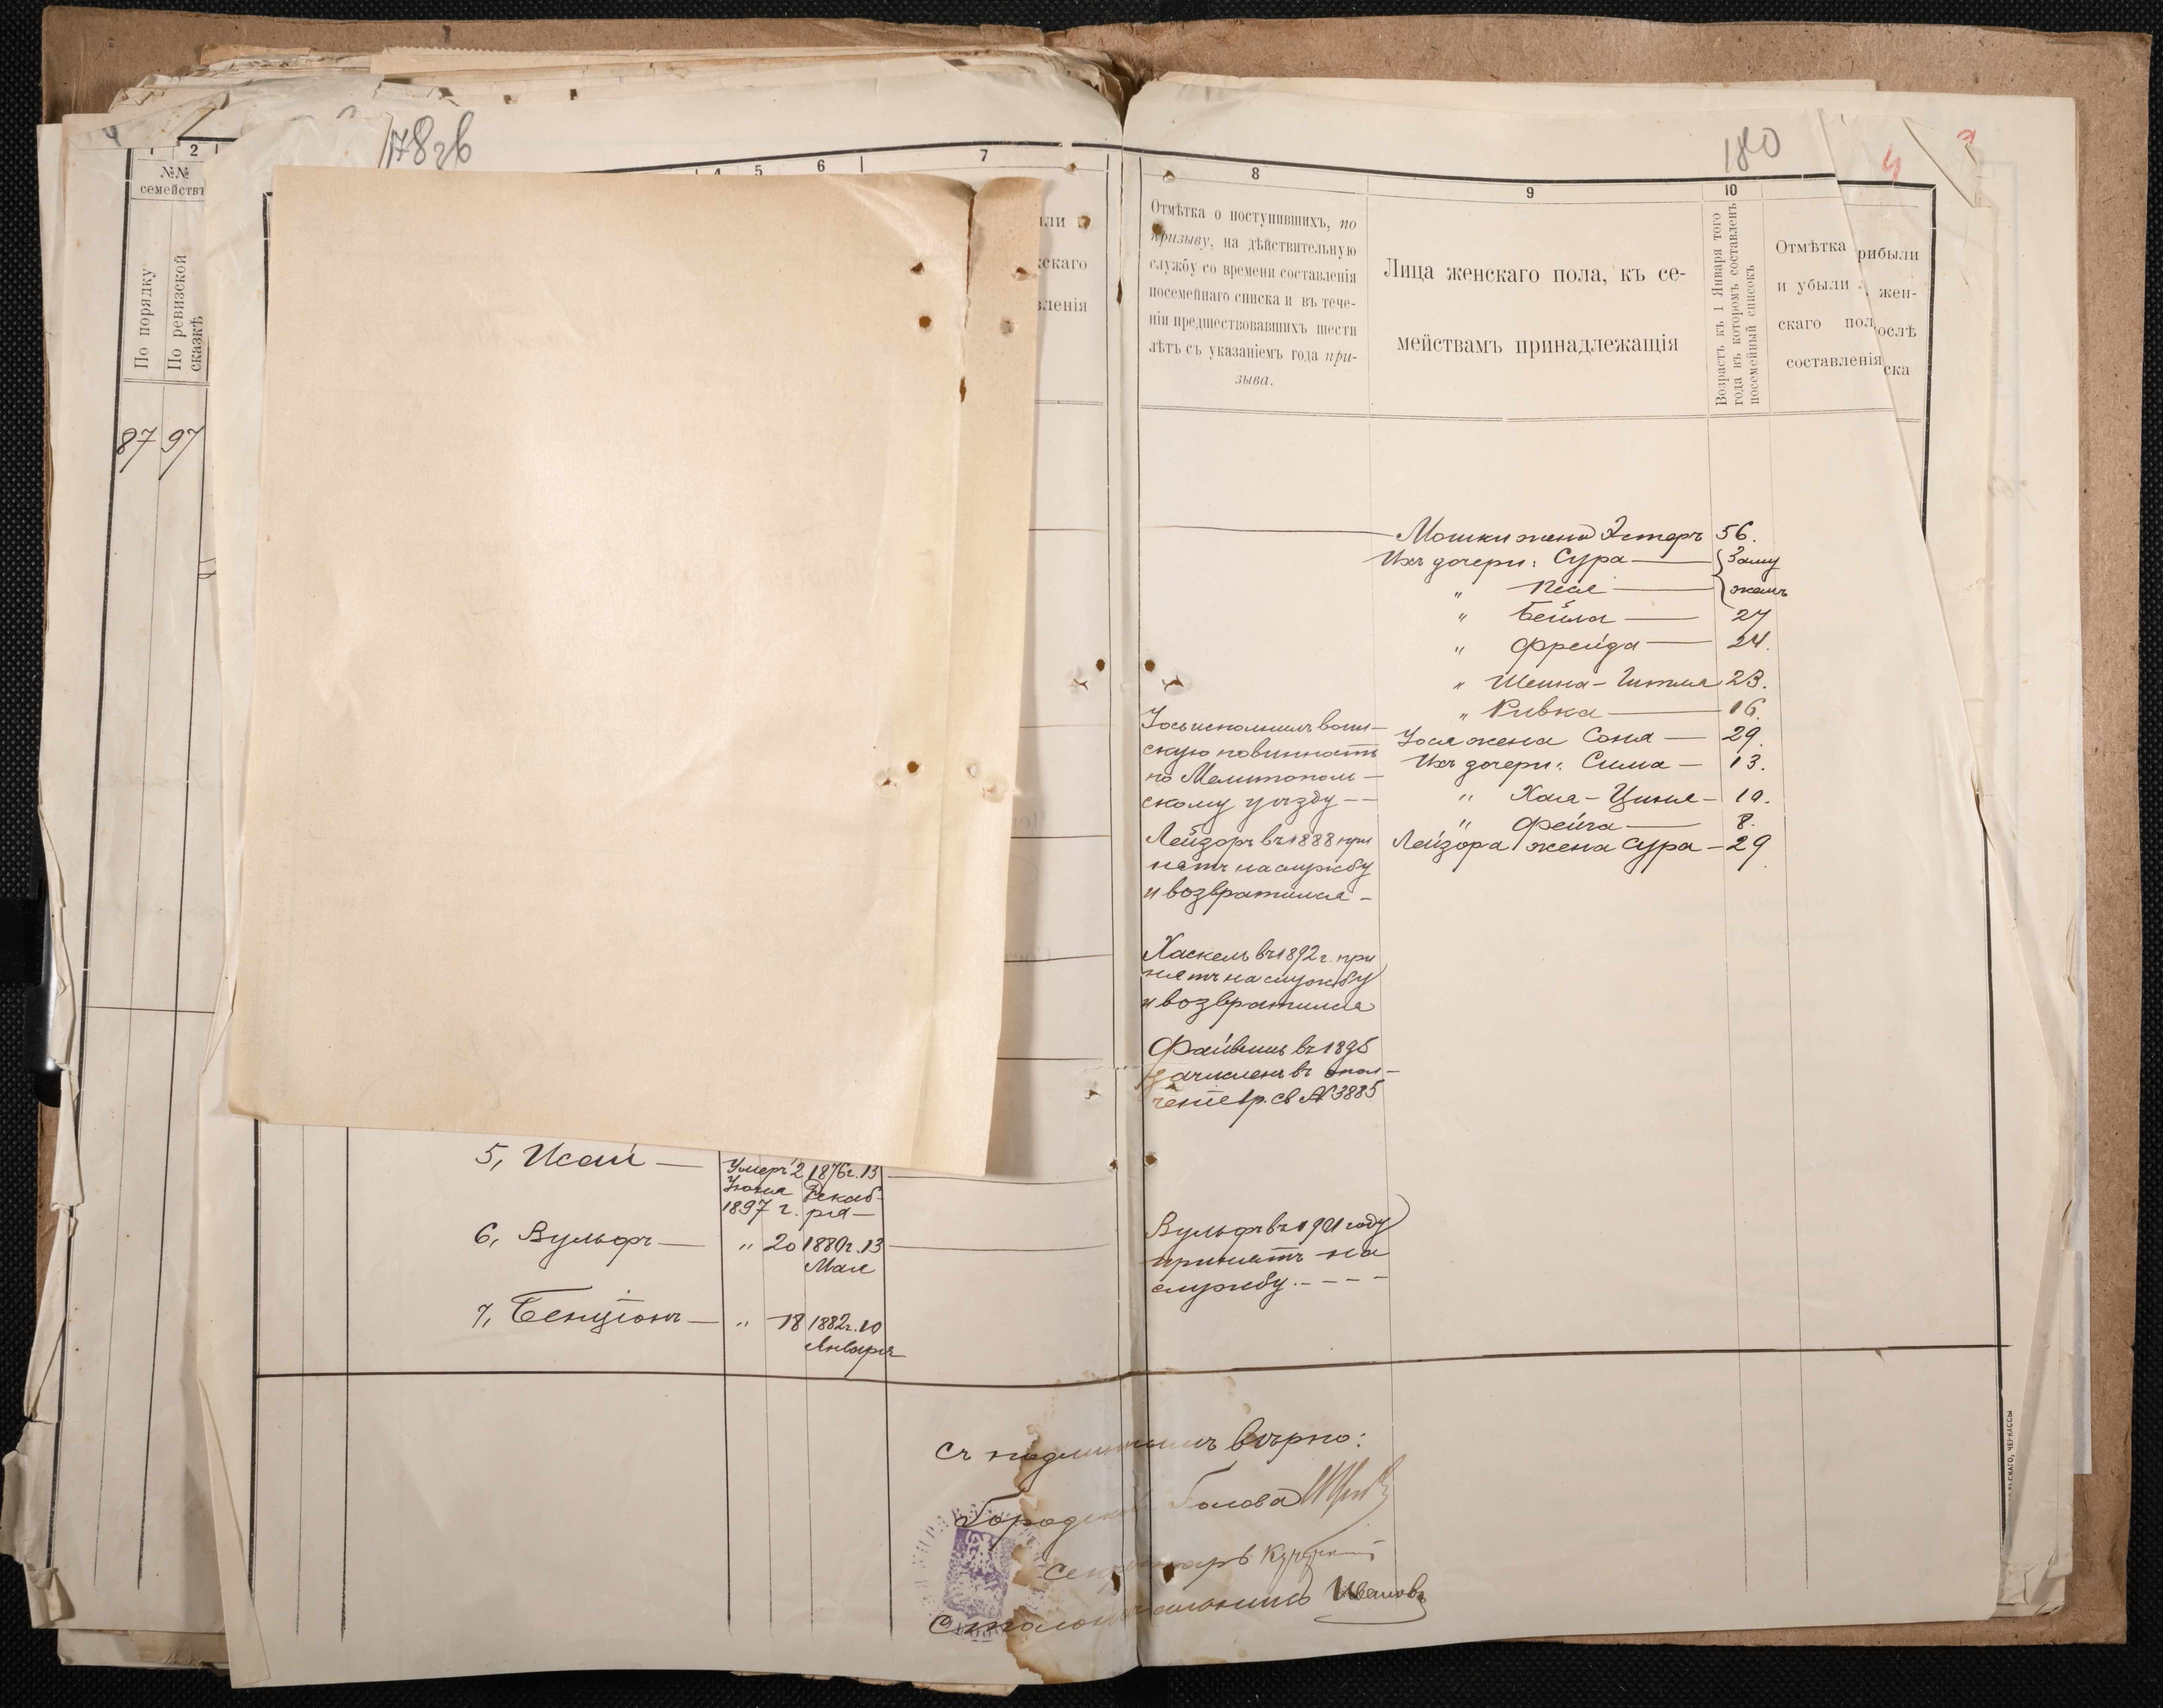 178 зв
180
4
2
4
5
6
7
8
9
10
№№
семействъ
По порядку
По ревизской
сказкѣ
87 97
Отмѣтка о поступившихъ, по
призыву, на дѣйствительную
службу со времени составленія
посемейнаго списка и въ тече-
ніи предшествовавшихъ шести
лѣтъ съ указаніемъ года при-
зыва.
Лица женскаго пола, къ се-
мействамъ принадлежащія
Возрастъ къ 1 Января того
года въ которомъ составленъ
посемейный списокъ
Отмѣтка
и убыли
скаго пол
составленія
рибыли
жен-
ослѣ
ска
ли
скаго
вленія
Мошки жена Эстеръ 56.
Ихъ дочери: Сура — Заму
" Песя — жемъ
" Бейла — 27
" Фрейда — 24.
" Шейна - Гитля 23.
" Ривка — 16.
Іося жена Соня — 29.
Ихъ дочери: Сима — 13.
" Хая - Ципа - 10.
" Фейга — 8.
Лейзора жена Сура — 29
Іось исполнилъ воин-
скую повинность
по Мелитополь-
скому уѣзду --
Лейзоръ въ 1888 при
нятъ на службу
и возвратился -
Хаскель въ 1892 г. при
нятъ на службу
и возвратился
Файвишъ въ 1895
зачисленъ въ опол-
ченіе 1р. св № 3885
5, Исай — Умеръ 2 1876г. 13
Іюня Декаб-
1897 г. ря —
6, Вульфъ — " 20 1880г. 13
Мая
Вульфъ въ 1901 году
принятъ на
службу - - - -
7, Бенціонъ — " 18 1882г. 10
Января
Съ подлиннымъ вѣрно:
Городской Голова
Секретарь
Столоначальникъ Ивановъ